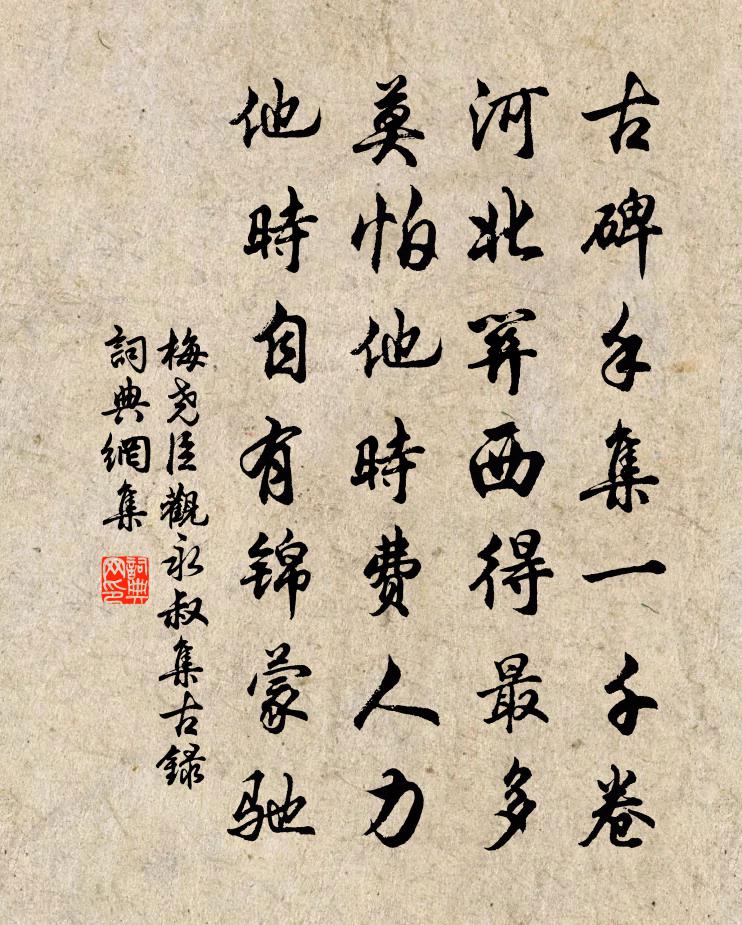 古碑手集一千卷
河北關西得最多
莫怕他時費人力
他時自有錦蒙馳
梅堯臣觀永叔集古錄
詞典網集
詞典
網印